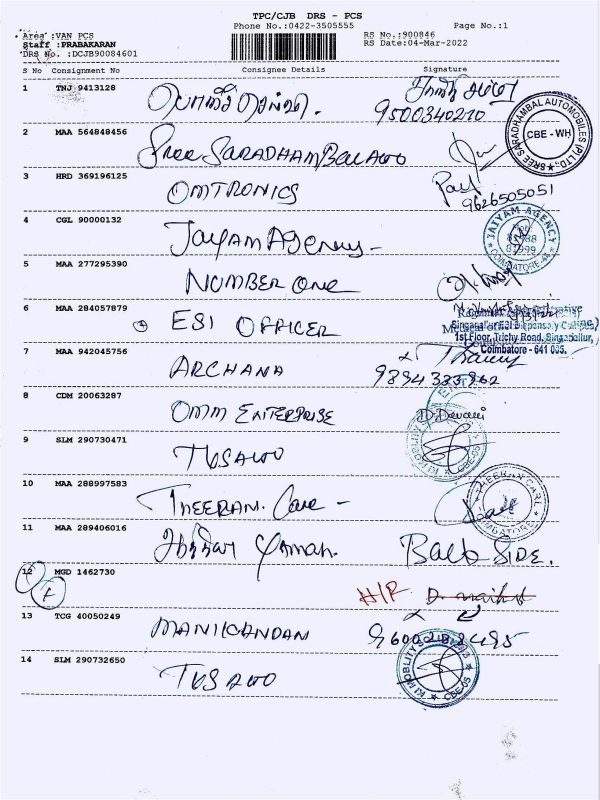 TPC/CJB DRS - PCS
Phone No.:0422-3505555 Page No.:1
Area :VAN PCS RS No.:900846
Staff :PRABAKARAN RS Date:04-Mar-2022
DRS No. :DCJB90084601
S No Consignment No Consignee Details Signature
1 TNJ 9413128
9500340210
SREE SARADHAMBAL AUTOMOBILES (P) LTD.,
CBE - WH
2 MAA 564848456 SREE SARADHAMBAL AUTO
3 HRD 369196125 OMTRONICS
9626505051
4 CGL 90000132 Jaiyam Agency -
JAIYAM AGENCY
COIMBATORE-44
5 MAA 277295390 NUMBER ONE
6 MAA 284057879 ESI OFFICER
1st Floor, Trichy Road, Singanallur,
Coimbatore - 641 005.
7 MAA 942045756 ARCHANA
9894333862
8 CDM 20063287 OMM ENTERPRISE D. Devani
9 SLM 290730471 TVS AUTO
KI MOBILITY
CBE-05
10 MAA 288997583 THEERAM. Care -
THEERAM CARE
COIMBATORE
11 MAA 289406016 BACK SIDE.
12 MGD 1462730 H/R
13 TCG 40050249 MANIKANDAN
14 SLM 290732650 TVS AUTO
KI MOBILITY
CBE-05